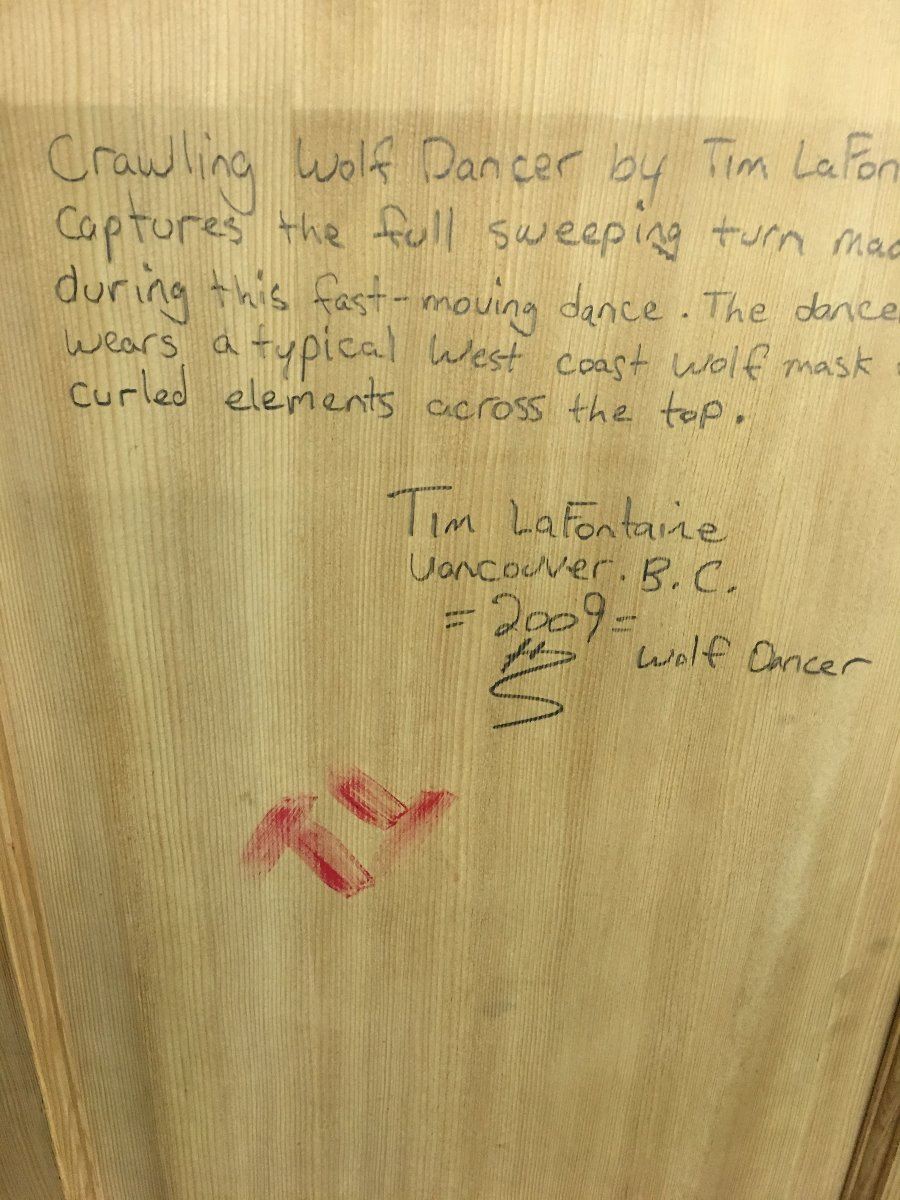 Crawling Wolf Dancer by Tim LaFon
Captures the full sweeping turn mad
during this fast-moving dance. The dancer
wears a typical West coast wolf mask
curled elements across the top.
Tim LaFontaine
Vancouver. B.C.
= 2009 =
Wolf Dancer
TL